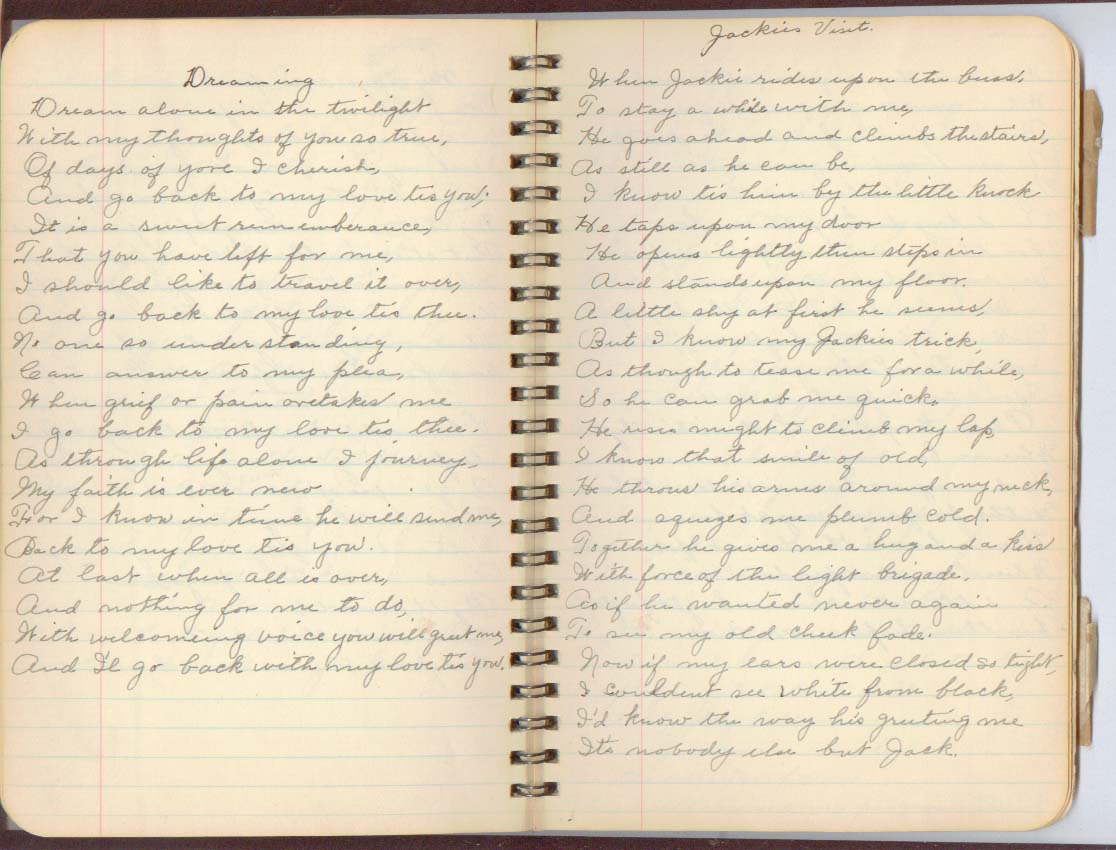 Dreaming
Dream alone in the twilight
With my thoughts of you so true,
Of days of yore I cherish,
And go back to my love tis you.
It is a sweet rememberance,
That you have left for me,
I should like to travel it over,
And go back to my love tis thee.
No one so understanding,
Can answer to my plea,
When grief or pain overtakes me
I go back to my love tis thee.
As through life alone I journey,
My faith is ever new
For I know in time he will send me,
Back to my love tis you.
At last when all is over,
And nothing for me to do,
With welcomeing voice you will greet me,
And I'l go back with my love tis you.
Jackies Visit.
When Jackie rides upon the buss,
To stay a while with me,
He goes ahead and climbs the stairs,
As still as he can be,
I know tis him by the little knock
He taps upon my door
He opens lightly then steps in
And stands upon my floor.
A little shy at first he seems,
But I know my Jackies trick,
As though to tease me for a while,
So he can grab me quick.
He uses might to climb my lap,
I know that smile of old,
He throws his arms around my neck,
And squezes me plumb cold.
Together he gives me a hug and a kiss
With force of the light brigade.
As if he wanted never again
To see my old cheek fade.
Now if my ears were closed so tight,
I couldent see white from black,
I'd know the way his greeting me
It's nobody else but Jack.